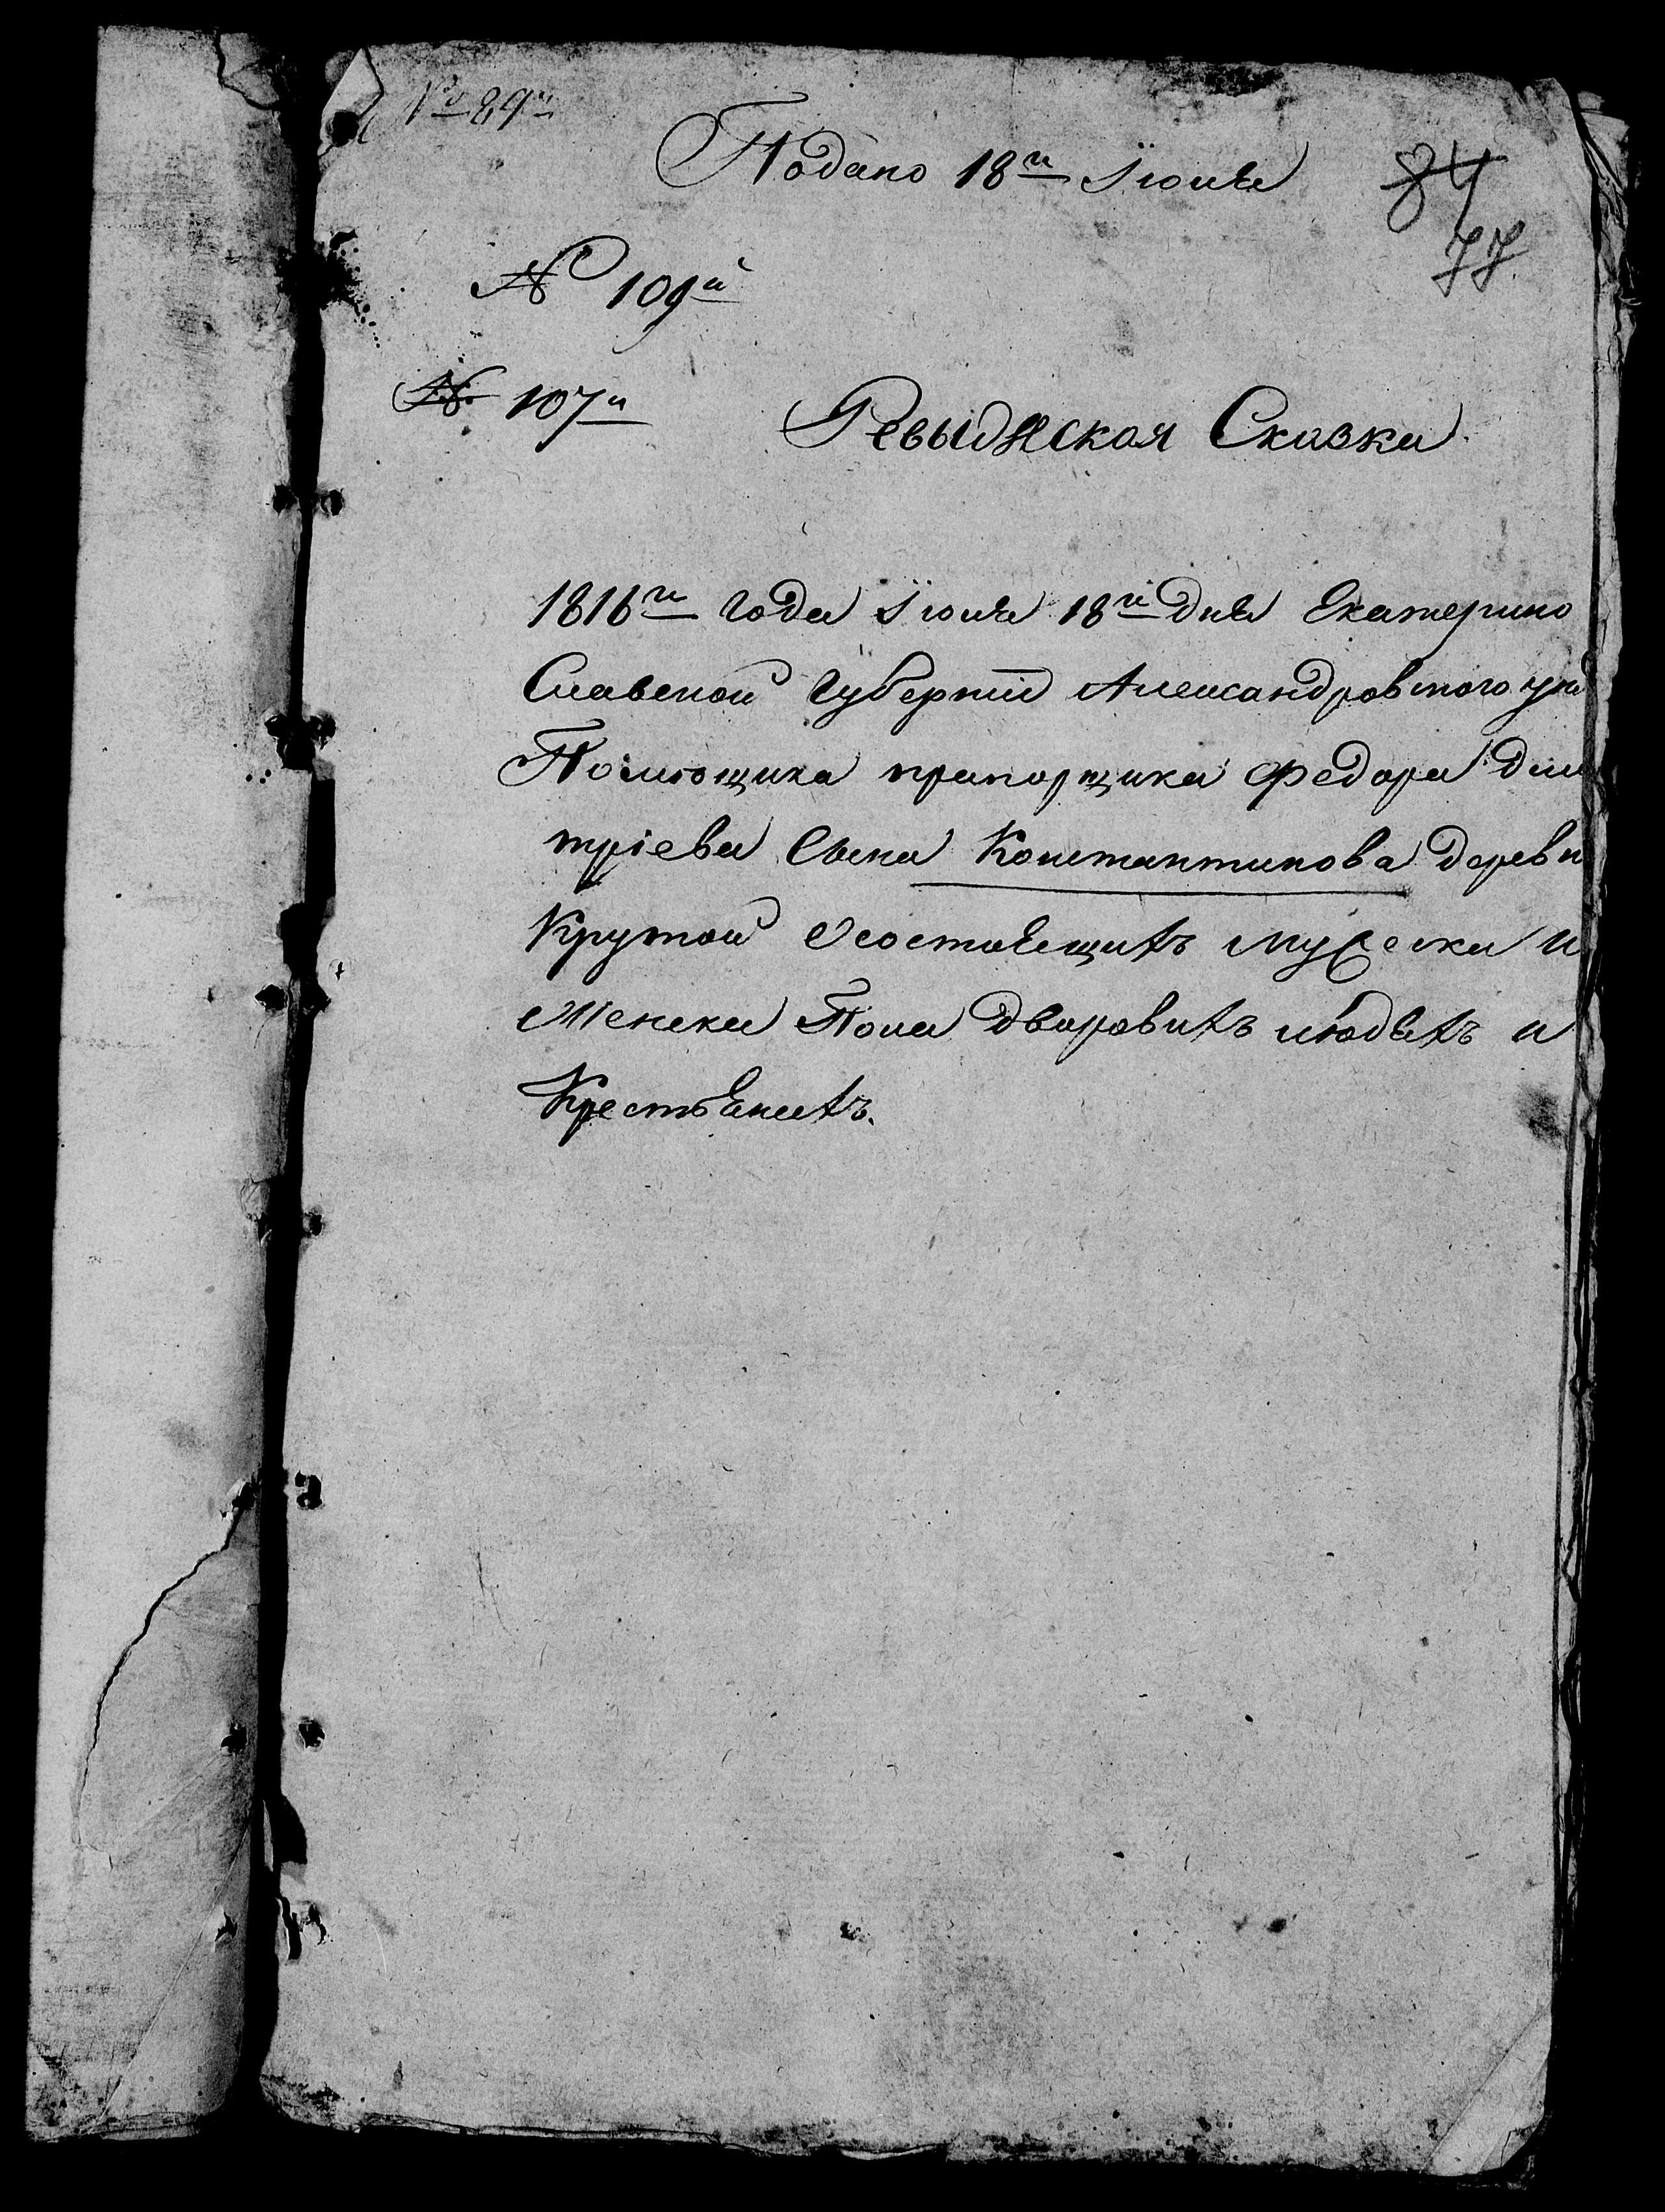 № 89й
Подано 18го Iюня
84
77.
№ 109й
№ 107й
Ревыдская Сказка
1816го года Iюня 18го дня Екатерино
Славской Губернiи Александровского
Помющика прапорщика Федора Дми
трiева Сына Константинова деревн
Крутой Осостоящихъ мужеска и
Женска Пола дворовихъ людяхъ и
Крестъянехъ.